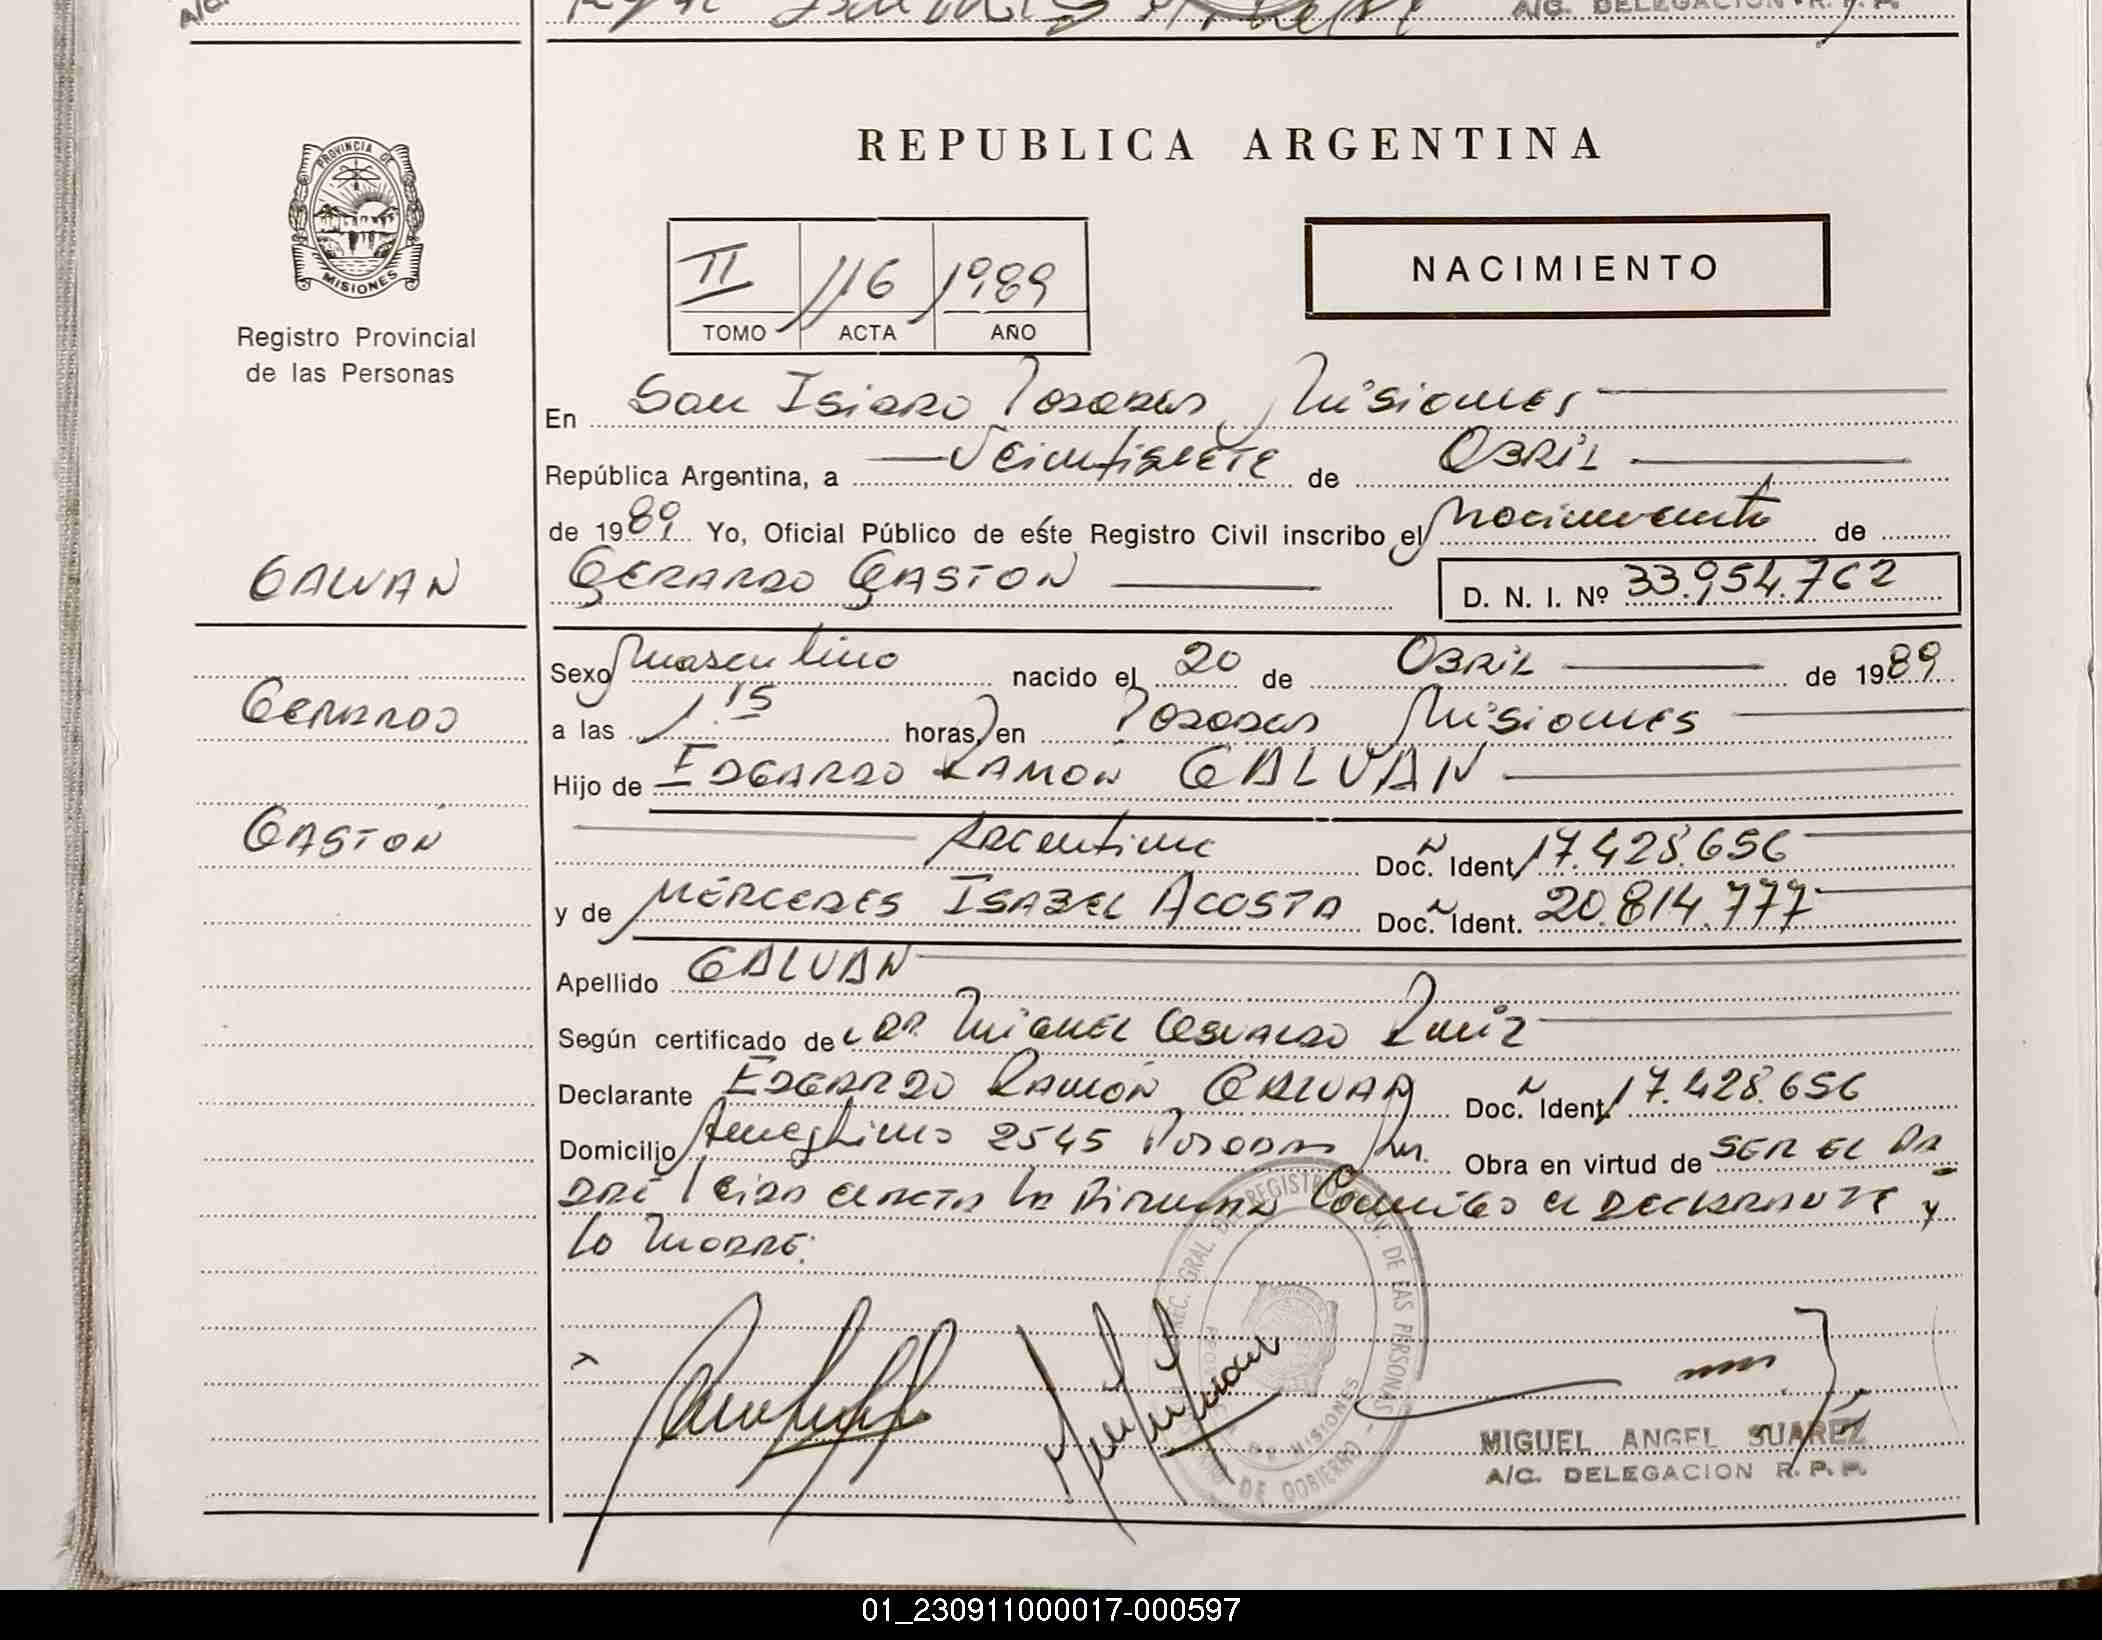 A/G. DELEGACION R. P. P.
PROVINCIA DE
MISIONES
Registro Provincial
de las Personas
REPUBLICA ARGENTINA
II 116 1989
TOMO ACTA AÑO
NACIMIENTO
En San Isidro Posadas, Misiones
República Argentina, a Veintisiete de Abril
de 1989 Yo, Oficial Público de este Registro Civil inscribo el Nacimiento de
GALVAN
GERARDO GASTON D. N. I. Nº 33.954.762
Sexo Masculino nacido el 20 de Abril de 1989
GERARDO
a las 1.15 horas, en Posadas Misiones
Hijo de EDGARDO RAMON GALVAN
GASTON
Argentino Doc. Ident. 17.428.656
y de MERCEDES ISABEL ACOSTA Doc. Ident. 20.814.777
Apellido GALVAN
Según certificado del Dr. Miguel Osvaldo Ruiz
Declarante EDGARDO RAMÓN GALVAN Doc. Ident. 17.428.656
Domicilio Ameghino 2545 Posadas Mnes. Obra en virtud de SER EL PA
DRE Leida el acta la firman Conmigo el DECLARANTE y
la Madre.
DIREC. GRAL. DEL REGISTRO PROV. DE LAS PERSONAS
DE GOBIERNO
MISIONES
MIGUEL ANGEL SUAREZ
A/C. DELEGACION R. P. P.
01_230911000017-000597